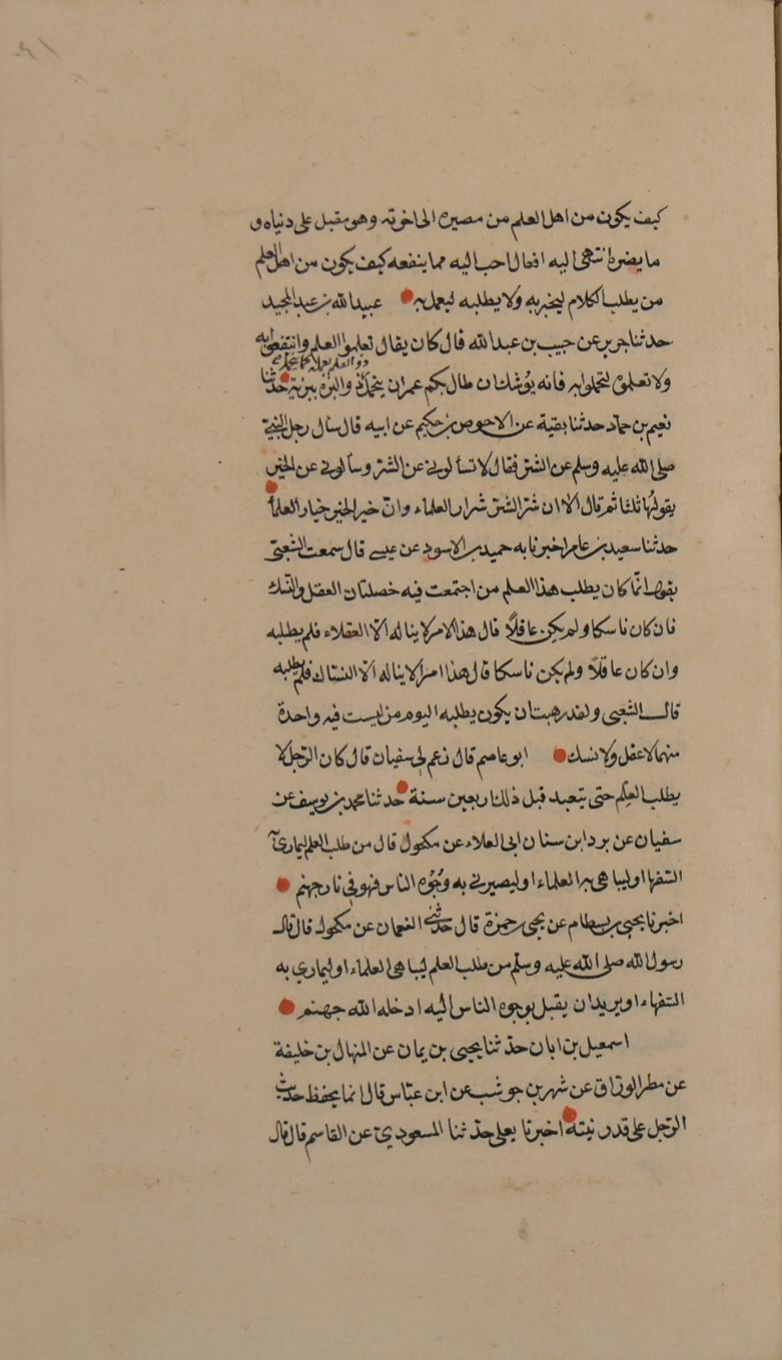 كيف يكون من اهل العلم من مصيره الى اخرته وهو مقبل على دنياه و
ما يضره اشهى اليه او قال احب اليه مما ينفعه كيف يكون من اهل العلم
من يطلب الكلام ليخبر به ولا يطلبه ليعمل به عبيد الله بن عبد المجيد
حدثنا جرير عن حبيب بن عبد الله قال كان يقال تعلموا العلم وانتفعوا به
ولا تعلموه لتجملوا به فانه يوشك ان طال بكم عمران يتجمل ذو البزة ببزته حدثنا
نعيم بن حماد حدثنا بقية عن الاحوص بن حكيم عن ابيه قال سأل رجل النبي
صلى الله عليه وسلم عن الشر فقال لا تسألوني عن الشر وسألوني عن الخير
يقولها ثلثا ثم قال الا ان شر الشر شرار العلماء وان خير الخير خيار العلما
حدثنا سعيد بن عامر اخبرنا به حميد بن الاسود عن عيسى قال سمعت الشعبي
يقول انما كان يطلب هذا العلم من اجتمعت فيه خصلتان العقل والنسك
فان كان ناسكا ولم يكن عاقلا قال هذا الامر لا يناله الا العقلاء فلم يطلبه
وان كان عاقلا ولم يكن ناسكا قال هذا امر لا يناله الا النساك فلم يطلبه
قال الشعبي ولقد رهبت ان يكون يطلبه اليوم من ليست فيه واحدة
منهما لا عقل ولا نسك ابو عاصم قال زعم لي سفيان قال كان الرجل لا
يطلب العلم حتى يتعبد قبل ذلك اربعين سنة حدثنا محمد بن يوسف عن
سفيان عن برد ابن سنان ابي العلاء عن مكحول قال من طلب العلم ليماري به
السفها او ليباهي به العلماء او ليصرف به وجوه الناس فهو في نار جهنم
اخبرنا يحيى بن بسطام عن يحيى بن حمزة قال حدثني النعمان عن مكحول قال قال
رسول الله صلى الله عليه وسلم من طلب العلم ليباهي العلماء او ليماري به
السفهاء او يريد ان يقبل بوجوه الناس اليه ادخله الله جهنم
اسمعيل بن ابان حدثنا يحيى بن يمان عن المنهال بن خليفة
عن مطر الوراق عن شهر بن حوشب عن ابن عباس قال انما يحفظ حديث
الرجل على قدر نيته اخبرنا يعلى حدثنا المسعودي عن القاسم قال قال